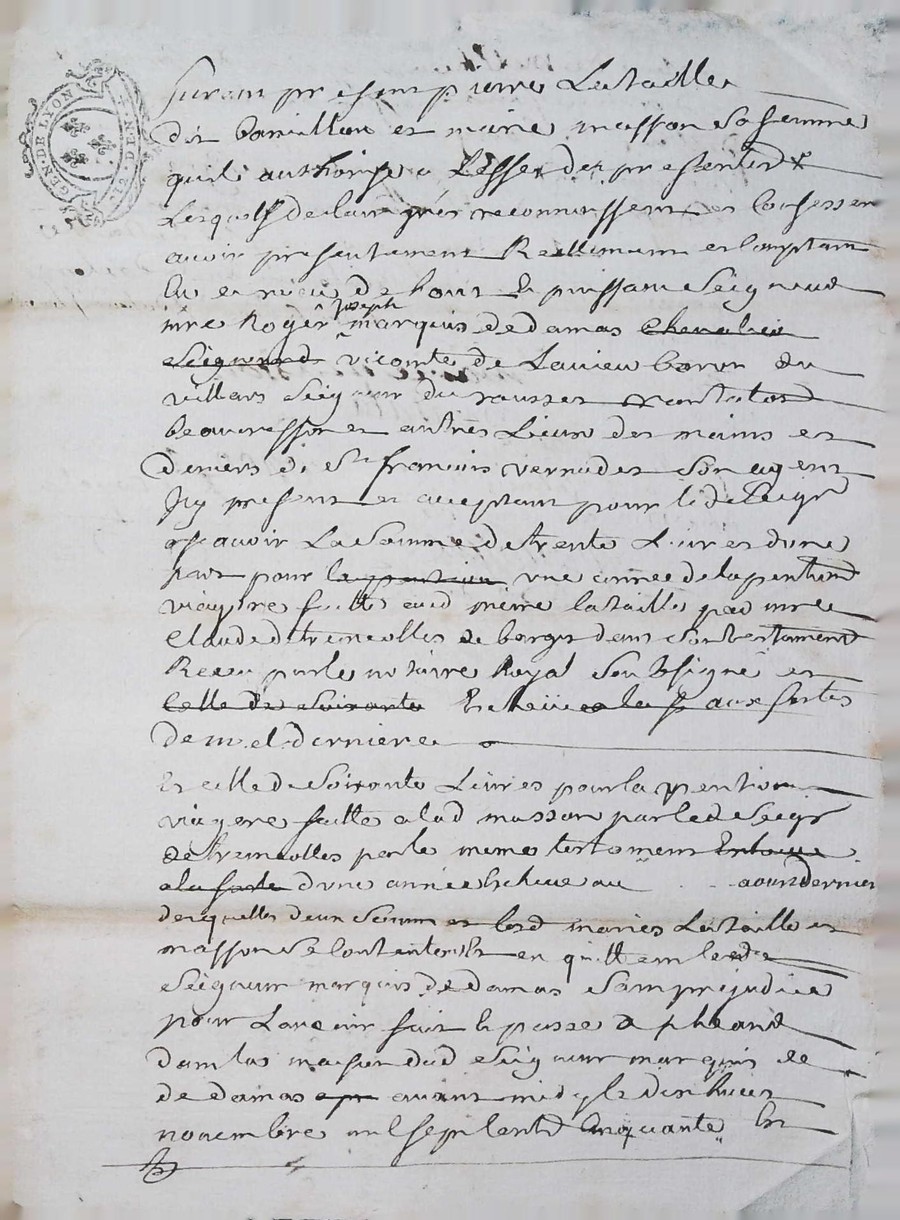 GEN. DE LYON
furent presents pierre Lataille
dit bouillon et marie masson sa femme
quil authorise a Leffet des presentes
Lesquels de leur gré reconnoissent et confessent
avoir presentement Reellement et comptant
eu et reçu de haut et puissant Seigneur
mre Roger joseph marquis de damas chevalier
Seigneur vicomte de Lavieu baron du
villars Seigneur du rousset
beauvesson et autres Lieux des mains et
deniers de Sr francois vernudes son agent
Icy present et acceptant pour led Seigr
ascavoir La Somme de trente Livres dune
part pour la pention une année de la pention
viagere faitte aud même lataille par mre
Claude de tremeolles de barges dans son testament
Receu par le notaire Royal Soubsigné et
celle de soixante Escheüe a la f aux fortes
de m. el derniere
Et celle de Soixante Livres pour la pention
viagere faitte a lad masson par led Seigr
de tremeolles par le meme testament Escheue
a la forte dune année Escheue au aoust dernier
desquelles deux Sommes et lesd mariés Lataille et
masson Se contentent et en quittent led
Seigneur marquis de damas Sans prejudice
pour Lavenir fait et passé a
dans la maison dud Seigneur marquis de
de damas apr avant midy le dix huit
novembre mil sept cent cinquante Et